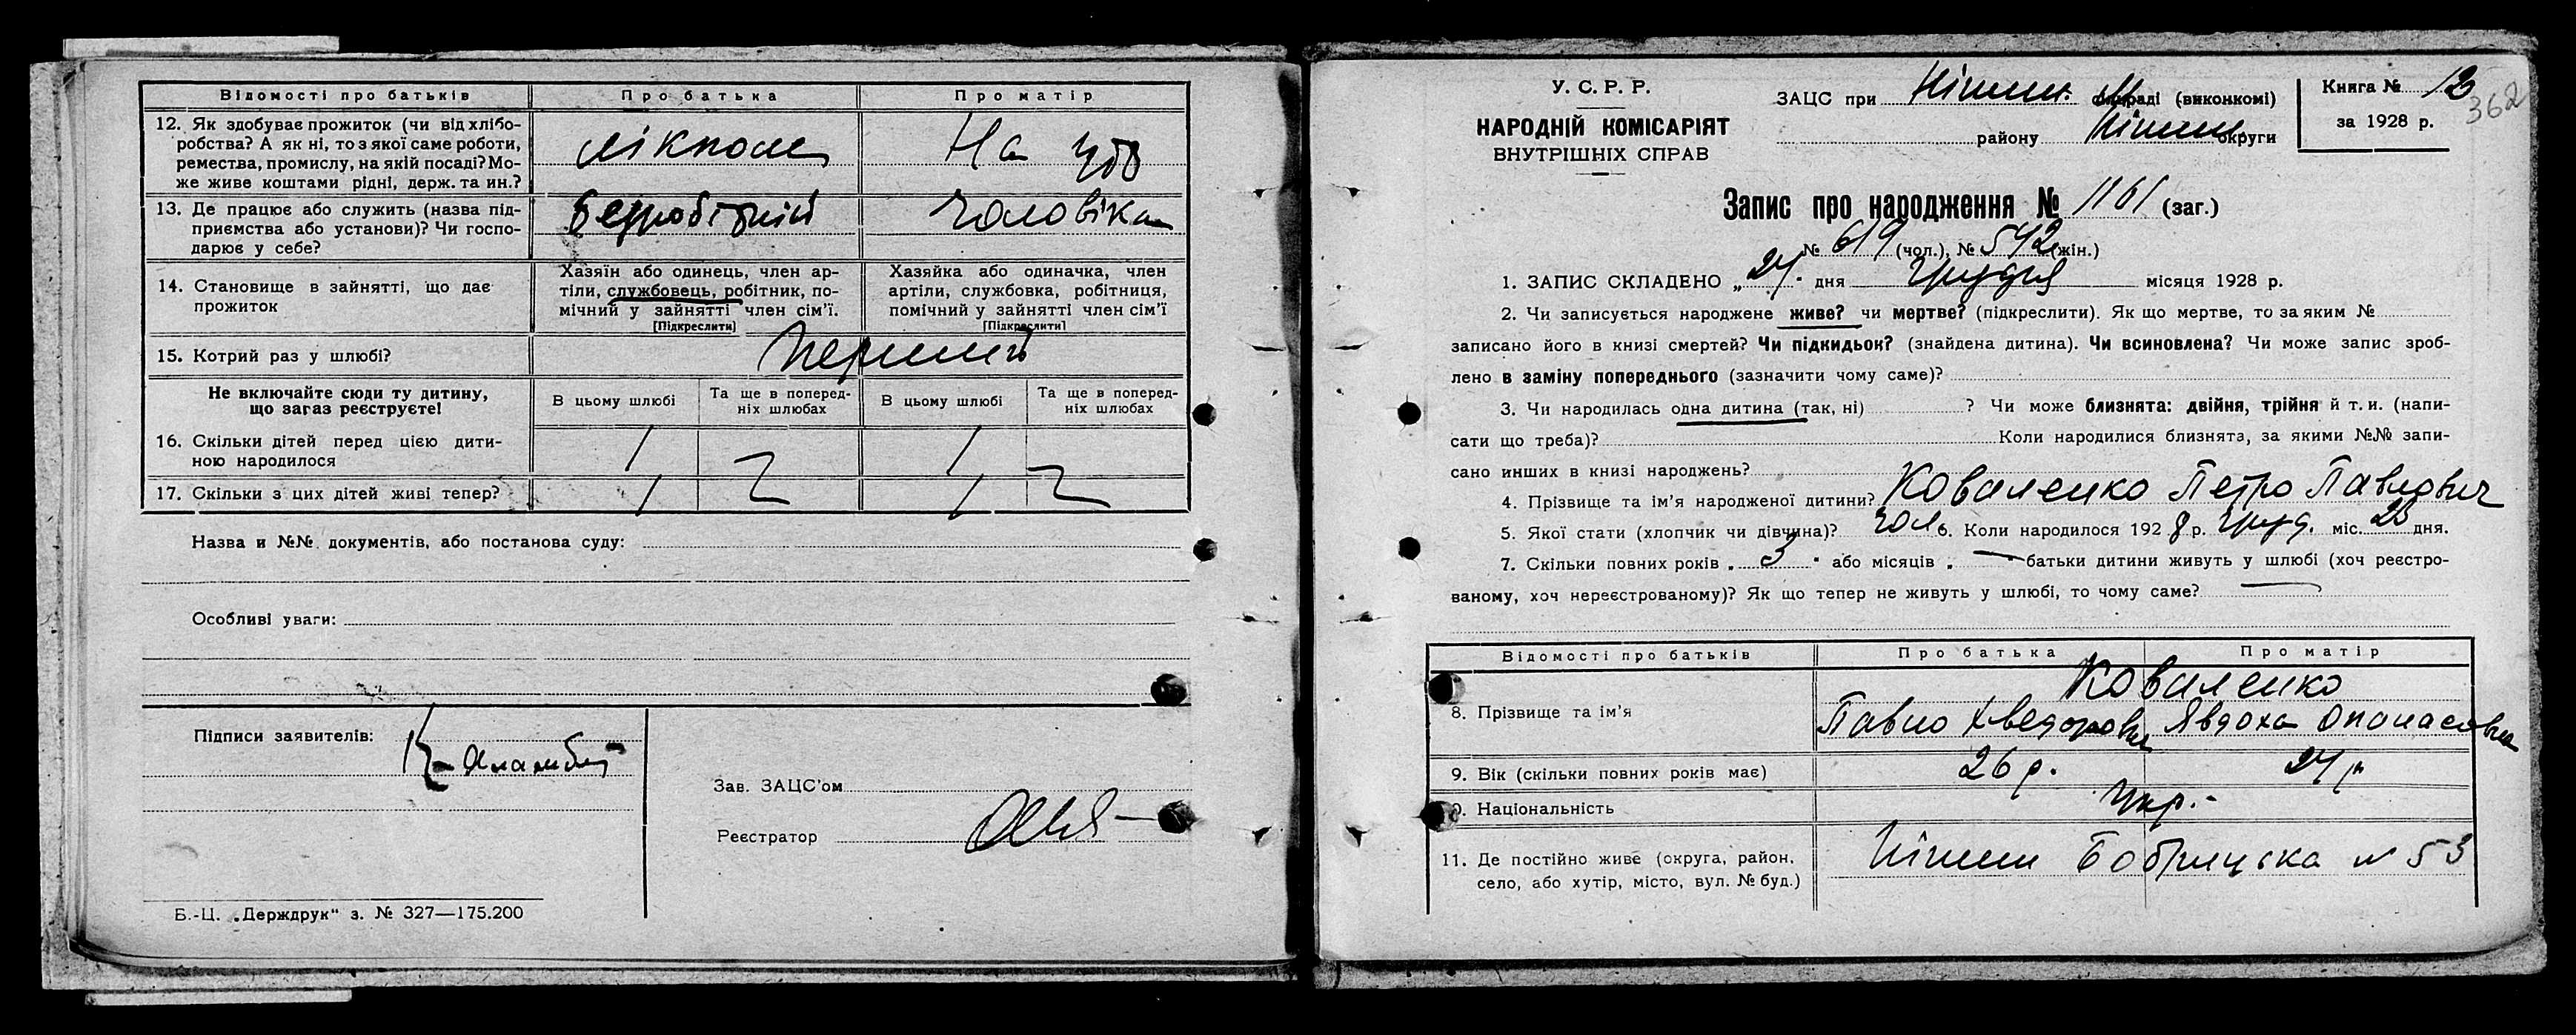 Відомості про батьків Про батька Про матір
12. Як здобуває прожиток (чи від хлібо-
робства? А як ні, то з якої саме роботи,
ремества, промислу, на якій посаді? Мо-
же живе коштами рідні, держ. та ин.?
лікпом На утр
13. Де працює або служить (назва під-
приємства або установи)? Чи госпо-
дарює у себе?
безробітний чоловіка
14. Становище в зайнятті, що дає
прожиток
Хазяїн або одинець, член ар-
тіли, службовець, робітник, по-
мічний у зайнятті член сім'ї.
[Підкреслити]
Хазяйка або одиначка, член
артіли, службовка, робітниця,
помічний у зайнятті член сім'ї
[Підкреслити]
15. Котрий раз у шлюбі? перший
Не включайте сюди ту дитину,
що загаз реєструєте!
В цьому шлюбі
Та ще в поперед-
ніх шлюбах
В цьому шлюбі
Та ще в поперед-
ніх шлюбах
16. Скільки дітей перед цією дити-
ною народилося
1 1
17. Скільки з цих дітей живі тепер? 1 1
Назва и №№ документів, або постанова суду:
Особливі уваги:
Підписи заявителів:
Зав. ЗАЦС'ом
Реєстратор
Б.-Ц. „Держдрук“ з. № 327—175.200
У. С. Р. Р.
НАРОДНІЙ КОМІСАРІЯТ
ВНУТРІШНІХ СПРАВ
ЗАЦС при Ніжин. (виконкомі)
району Ніжин. округи
Книга № 12
за 1928 р.
362
Запис про народження № 1161 (заг.)
№ 619 (чол.), № 542 (жін.)
1. ЗАПИС СКЛАДЕНО „27“ дня грудня місяця 1928 р.
2. Чи записується народжене живе? чи мертве? (підкреслити). Як що мертве, то за яким №
записано його в книзі смертей? Чи підкидьок? (знайдена дитина). Чи всиновлена? Чи може запис зроб-
лено в заміну попереднього (зазначити чому саме)?
3. Чи народилась одна дитина (так, ні) ? Чи може близнята: двійня, трійня й т. и. (напи-
сати що треба)? Коли народилися близнята, за якими №№ запи-
сано инших в книзі народжень?
4. Прізвище та ім'я народженої дитини? Коваленко Петро Павлович
5. Якої стати (хлопчик чи дівчина)? чол 6. Коли народилося 1928 р. груд. міс. дня.
7. Скільки повних років „ 3 “ або місяців „ — батьки дитини живуть у шлюбі (хоч реєстро-
ваному, хоч нереєстрованому)? Як що тепер не живуть у шлюбі, то чому саме? —
Відомості про батьків Про батька Про матір
Коваленко
8. Прізвище та ім'я Павло Хведорович Явдоха Опанасовна
9. Вік (скільки повних років має) 26 р. 24 р
10. Національність Укр.-
11. Де постійно живе (округа, район,
село, або хутір, місто, вул. № буд.)
Ніжин Бобрицька № 53